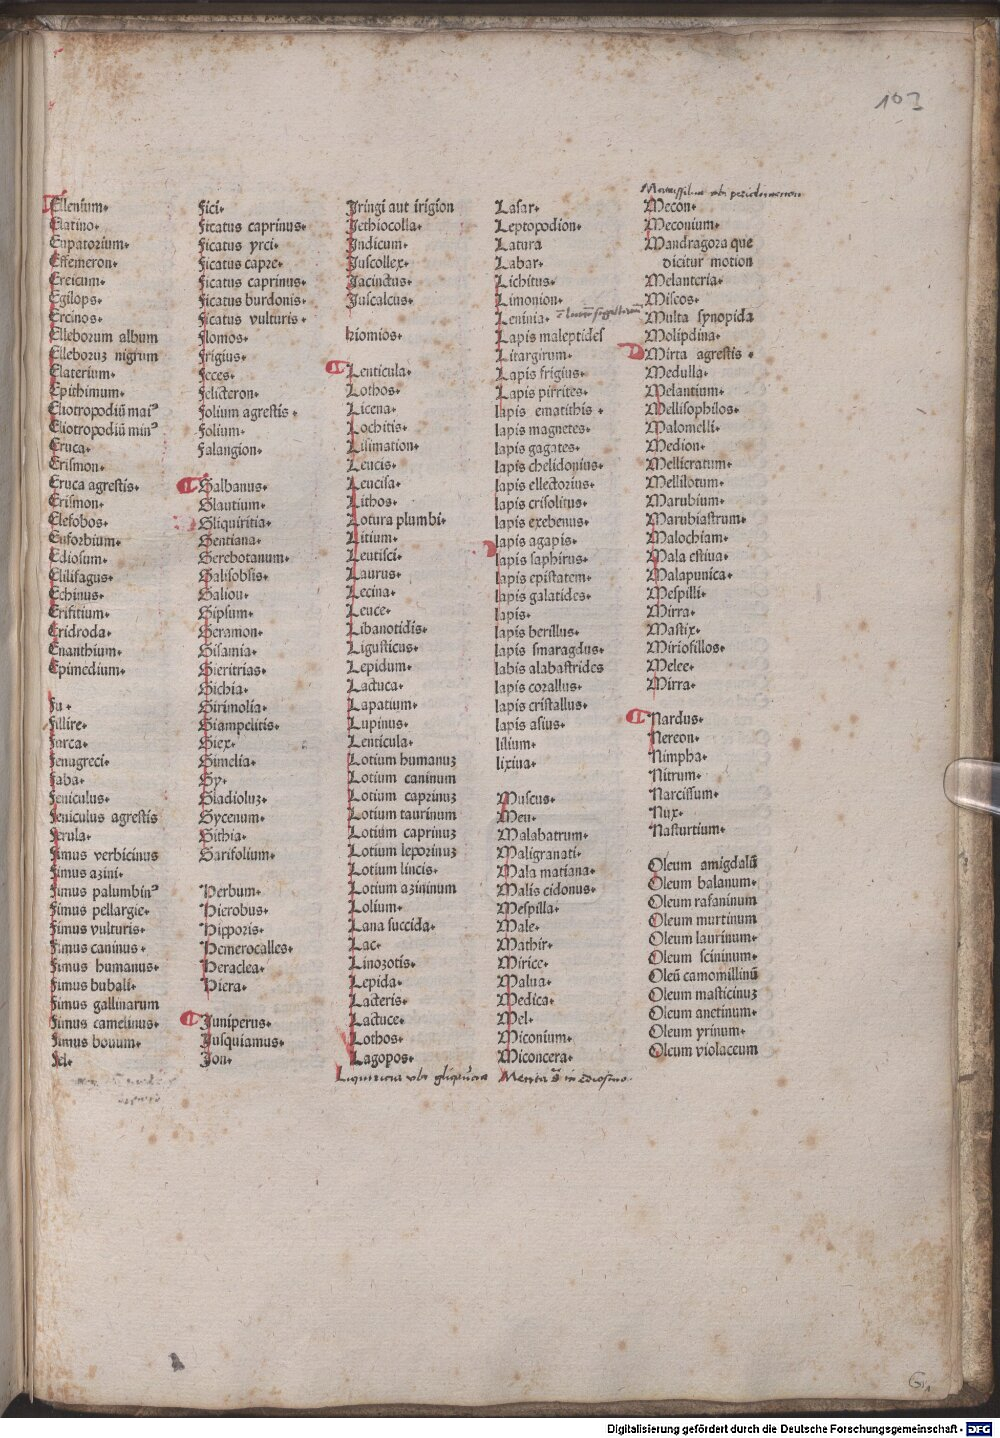 103
Ellenium.
Elatino.
Eupatorium.
Effemeron.
Ereicum.
Egilops.
Ercinos.
Elleborum album
Elleboruʒ nigrum
Elaterium.
Epithimum.
Eliotropodiū maiꝰ
Eliotropodiū minꝰ
Eruca.
Erismon.
Eruca agrestis.
Erismon.
Elefobos.
Euforbium.
Ediosum.
Elilifagus.
Echinus.
Erifitium.
Eridroda.
Enanthium.
Epimedium.
Fu.
Fillire.
Farca.
Fenugreci.
Faba.
Feniculus.
Feniculus agrestis
Ferula.
Fimus verbicinus
Fimus azini.
Fimus palumbinꝰ
Fimus pellargie.
Fimus vulturis.
Fimus caninus.
Fimus humanus.
Fimus bubali.
Fimus gallinarum
Fimus camelinus.
Fimus bouum.
Fel.
Fici.
Ficatus caprinus.
Ficatus yrci.
Ficatus capre.
Ficatus caprinus.
Ficatus burdonis.
Ficatus vulturis.
Flomos.
Frigius.
Feces.
Felicteron.
Folium agrestis.
Folium.
Falangion.
Galbanus.
Glautium.
Gliquiritia.
Gentiana.
Gerebotanum.
Galisobsis.
Galiou.
Gipsum.
Geramon.
Gisamia.
Gieritrias.
Gichia.
Girimolia.
Giampelitis.
Giex.
Gimelia.
Gy.
Gladioluʒ.
Gycenum.
Githia.
Garifolium.
Herbum.
Hierobus.
Hipporis.
Hemerocalles.
Heraclea.
Hiera.
Juniperus.
Jusquiamus.
Jon.
Iringi aut irigion
Jethiocolla.
Indicum.
Juscollex.
Jacinctus.
Juscalcus.
kiomios.
Lenticula.
Lothos.
Licena.
Lochitis.
Lisimation.
Leucis.
Leucisa.
Lithos.
Lotura plumbi.
Litium.
Leutisci.
Laurus.
Lecina.
Leuce.
Libanotidis.
Ligusticus.
Lepidum.
Lactuca.
Lapatium.
Lupinus.
Lenticula.
Lotium humanuʒ
Lotium caninum
Lotium caprinuʒ
Lotium taurinum
Lotium caprinuʒ
Lotium leporinuʒ
Lotium lincis.
Lotium azininum
Lolium.
Lana succida.
Lac.
Linozotis.
Lepida.
Lacteris.
Lactuce.
Lothos.
Lagopos.
Lasar.
Leptopodion.
Latura
Labar.
Lichitus.
Limonion.
Leninia.
Lapis maleptides
Litargirum.
Lapis frigius.
Lapis pirrites.
lapis ematithis.
lapis magnetes.
lapis gagates.
lapis chelidonius.
lapis ellectorius.
lapis crisolitus.
lapis exebenus.
lapis agapis.
lapis saphirus.
lapis epistatem.
lapis galatides.
lapis.
lapis berillus.
lapis smaragdus.
labis alabastrides
lapis corallus.
lapis cristallus.
lapis asius.
lilium.
lixiua.
Muscus.
Meu.
Malabatrum.
Maligranati.
Mala matiana.
Malis cidonus.
Mespilla.
Male.
Mathir.
Mirice.
Malua.
Medica.
Mel.
Miconium.
Miconcera.
Mecon.
Meconium.
Mandragora que
dicitur motion
Melanteria.
Miscos.
Multa synopida
Molipdina.
Mirta agrestis.
Medulla.
Melantium.
Mellisophilos.
Malomelli.
Medion.
Mellicratum.
Mellilotum.
Marubium.
Marubiastrum.
Malochiam.
Mala estiua.
Malapunica.
Mespilli.
Mirra.
Mastix.
Miriofillos.
Melee.
Mirra.
Nardus.
Nereon.
Nimpha.
Nitrum.
Narcissum.
Nux.
Nasturtium.
Oleum amigdalū
Oleum balanum.
Oleum rafaninum
Oleum murtinum
Oleum laurinum.
Oleum scininum.
Oleū camomillinū
Oleum masticinuʒ
Oleum anetinum.
Oleum yrinum.
Oleum violaceum
Digitalisierung gefördert durch die Deutsche Forschungsgemeinschaft - DFG